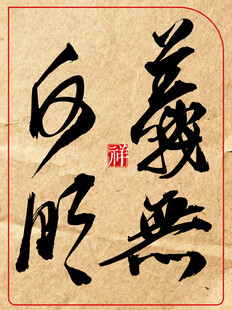 義無
反顧
祥